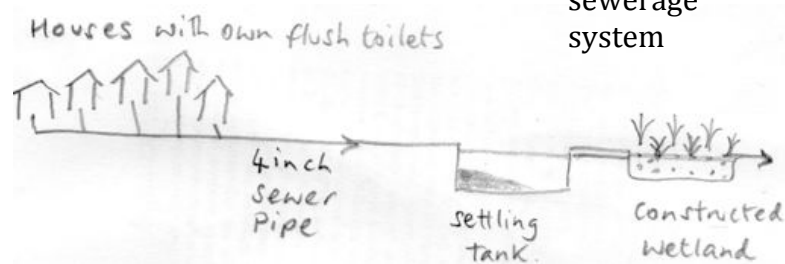 sewerage
system
Houses with own flush toilets
4inch
Sewer
Pipe
settling
tank.
Constructed
wetland